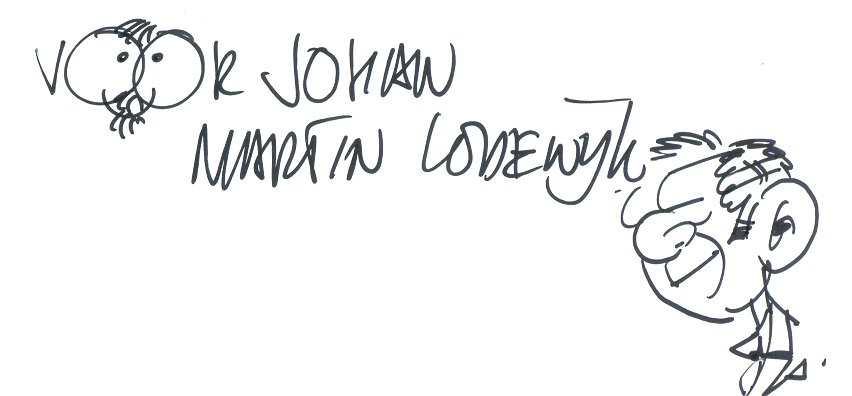 VOOR JOHAN
MARTIN LODEWYK